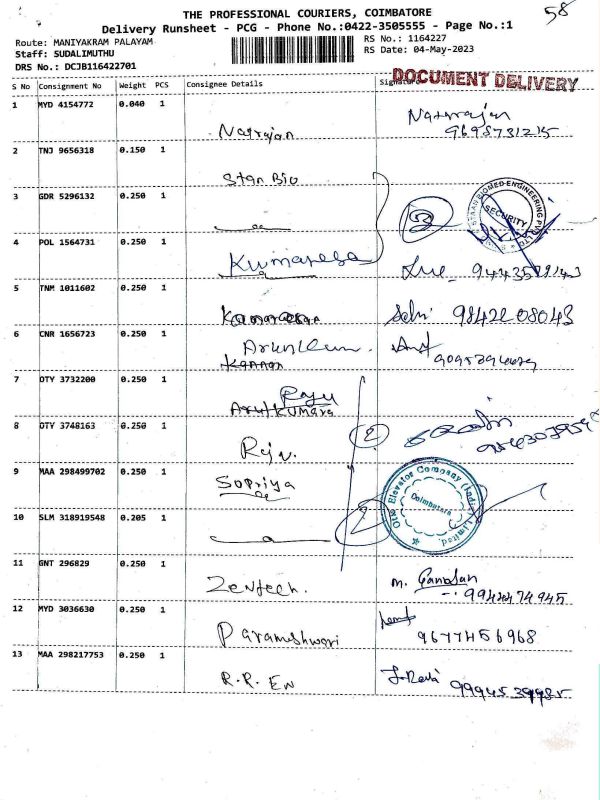 58
THE PROFESSIONAL COURIERS, COIMBATORE
Delivery Runsheet - PCG - Phone No.:0422-3505555 - Page No.:1
Route: MANIYAKRAM PALAYAM
RS No.: 1164227
Staff: SUDALIMUTHU
RS Date: 04-May-2023
DRS No.: DCJB116422701
S No Consignment No Weight PCS Consignee Details Signature
DOCUMENT DELIVERY
1 MYD 4154772 0.040 1
Natrajan
Natarajan
2 TNJ 9656318 0.150 1
Stan Bio
3 GDR 5296132 0.250 1
STAAN BIOMED ENGINEERING PVT LTD
SECURITY
4 POL 1564731 0.250 1
Kumaresa
5 TNM 1011602 0.250 1
Selvi 9842208043
6 CNR 1656723 0.250 1
Kannan
7 OTY 3732200 0.250 1
Raju
Arutkumara
8 OTY 3748163 0.250 1
Raju.
2
9 MAA 298499702 0.250 1
Sopriya
Otis Elevator Company (India) Limited.
Coimbatore
10 SLM 318919548 0.205 1
2
11 GNT 296829 0.250 1
Zentech.
m. Ganesan
12 MYD 3036630 0.250 1
Parameshwari
9677456968
13 MAA 298217753 0.250 1
R.R. En
J. Ravi